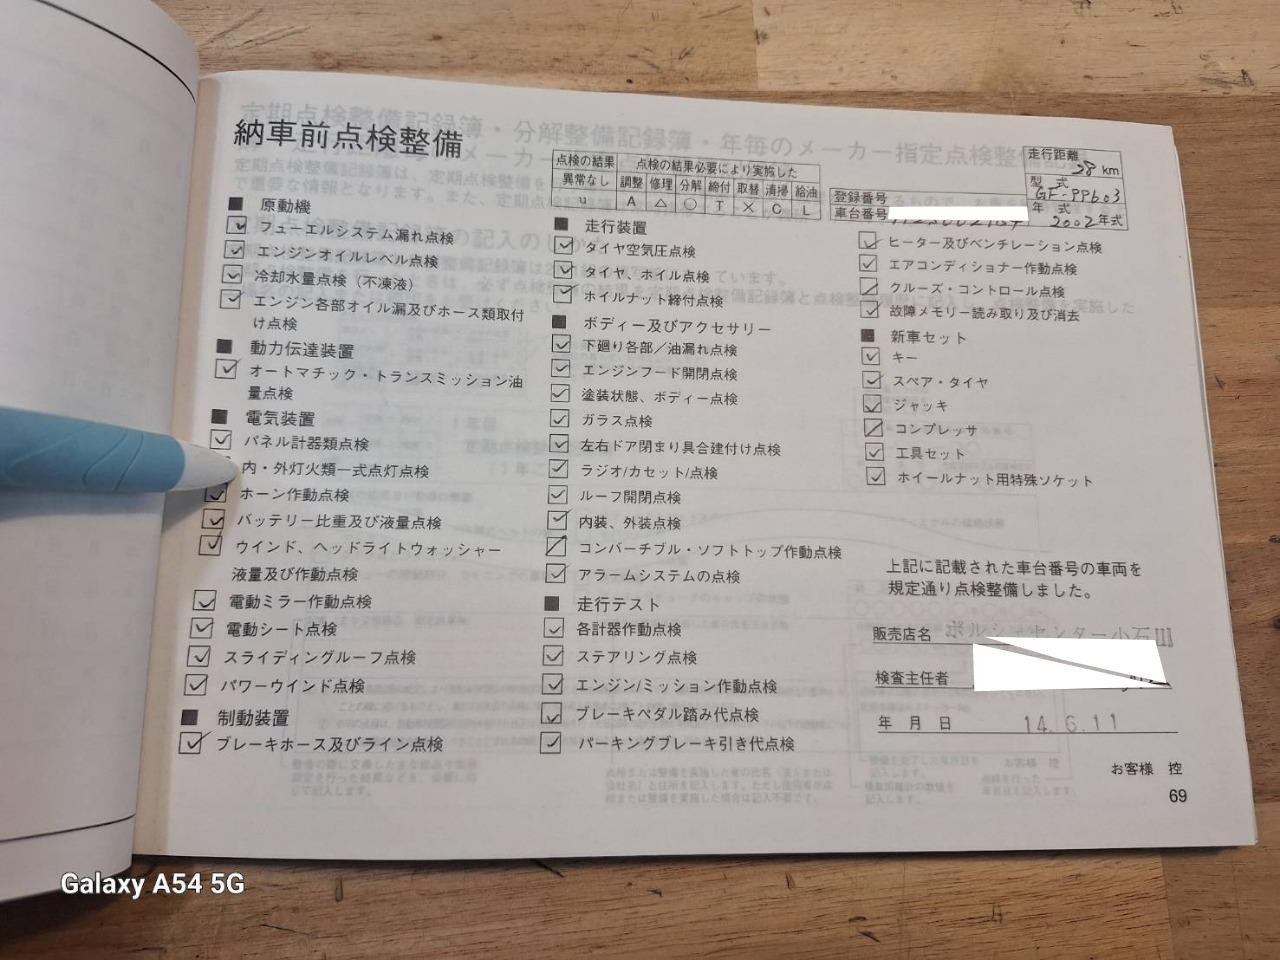 納車前点検整備
点検の結果
異常なし
u
点検の結果必要により実施した
調整 修理 分解 締付 取替 清掃 給油
A △ ○ T × C L
登録番号
車台番号
走行距離
28 km
型式
GF-99603
年式
2002年式
■ 原動機
フューエルシステム漏れ点検
エンジンオイルレベル点検
冷却水量点検（不凍液）
エンジン各部オイル漏及びホース類取付
け点検
■ 動力伝達装置
オートマチック・トランスミッション油
量点検
■ 電気装置
パネル計器類点検
内・外灯火類一式点灯点検
ホーン作動点検
バッテリー比重及び液量点検
ウインド、ヘッドライトウォッシャー
液量及び作動点検
電動ミラー作動点検
電動シート点検
スライディングルーフ点検
パワーウインド点検
■ 制動装置
ブレーキホース及びライン点検
■ 走行装置
タイヤ空気圧点検
タイヤ、ホイル点検
ホイルナット締付点検
■ ボディー及びアクセサリー
下廻り各部／油漏れ点検
エンジンフード開閉点検
塗装状態、ボディー点検
ガラス点検
左右ドア閉まり具合建付け点検
ラジオ/カセット/点検
ルーフ開閉点検
内装、外装点検
コンバーチブル・ソフトトップ作動点検
アラームシステムの点検
■ 走行テスト
各計器作動点検
ステアリング点検
エンジン/ミッション作動点検
ブレーキペダル踏み代点検
パーキングブレーキ引き代点検
ヒーター及びベンチレーション点検
エアコンディショナー作動点検
クルーズ・コントロール点検
故障メモリー読み取り及び消去
■ 新車セット
キー
スペア・タイヤ
ジャッキ
コンプレッサ
工具セット
ホイールナット用特殊ソケット
上記に記載された車台番号の車両を
規定通り点検整備しました。
販売店名 ポルシェセンター小石川
検査主任者
年 月 日 14. 6. 11
お客様 控
69
Galaxy A54 5G